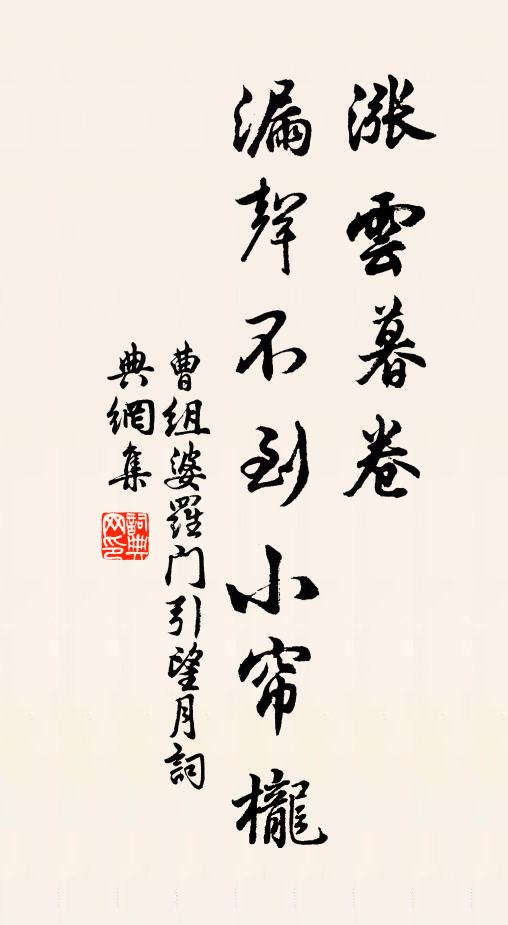 漲雲暮卷
漏聲不到小帘櫳
曹组婆羅门引望月詞
典網集
詞典
网印